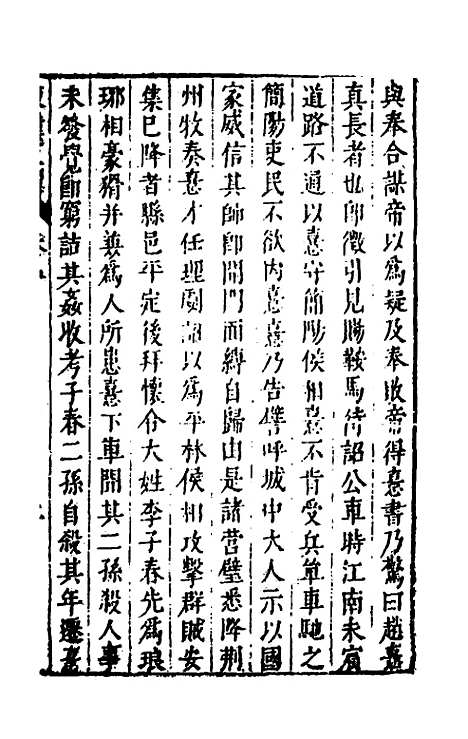 與奉合謀帝以爲疑及奉敗帝得憙書乃驚曰趙憙
真長者也卽徵引見賜鞍馬待詔公車時江南未賔
道路不通以憙守簡陽侯相憙不肯受兵單車馳之
簡陽吏民不欲內憙憙乃告譬呼城中大人示以國
家威信其帥卽開門而縛自歸由是諸營壁悉降荆
州牧奏憙才任理劇詔以爲平林侯相攻擊群賊安
集已降者縣邑平定後拜懷令大姓李子春先爲琅
琊相豪猾并兼爲人所患憙下車聞其二孫殺人事
未發覺卽窮詰其姦收考子春二孫自殺其年遷憙